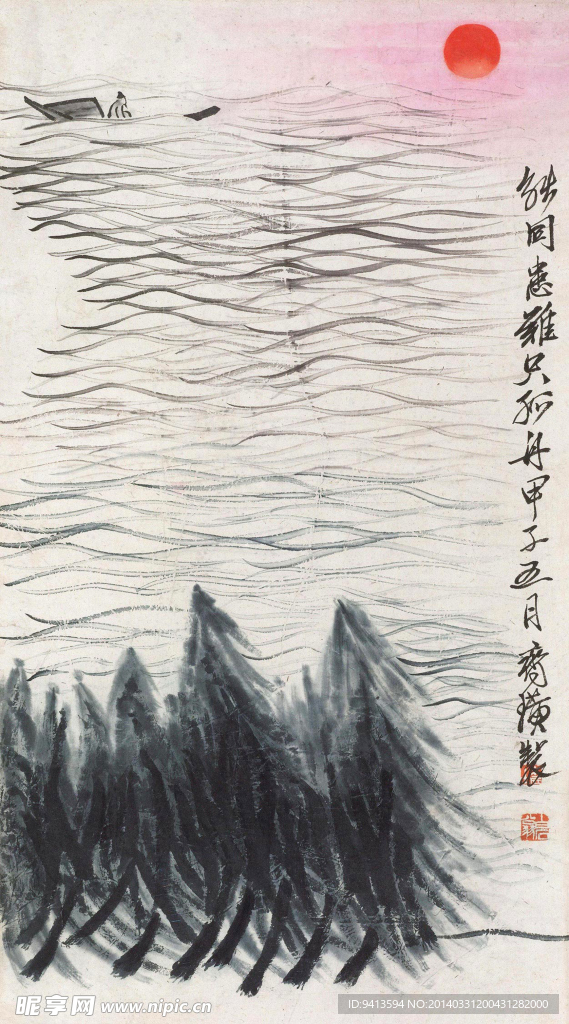 能同患難只孤舟甲子五月齊璜製
昵享网 www.nipic.cn
ID:9413594 NO:20140331200431282000